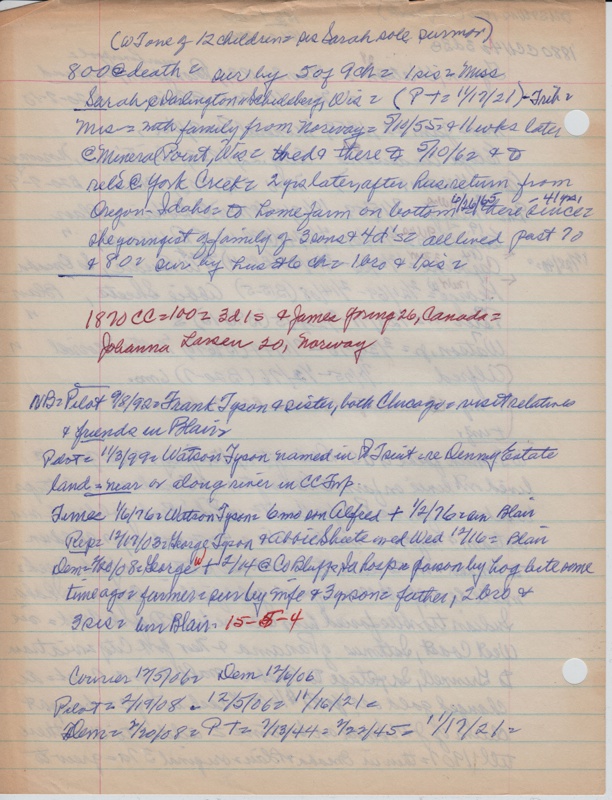 (WT one of 12 children = sis Sarah sole survivor)
80 @ death = sur by 5 of 9 ch = 1 sis = Miss
Sarah @ Darlington Wis = (P + = 11/17/21) - Trib =
Mrs = with family from Norway = 5/19/55 = & 11 wks later
@ Mineral Point, Wis = there 5/10/62 & to
rels @ York Creek = 2 yrs later, after hus return from
Oregon - Idaho = to home farm on bottom 6/26/65 there since = 41 yrs,
she youngest of family of 3 sons & 4 d's = all lived past 70
& 80 = sur by hus ch = 1 bro & 1 sis =
1870 CC = 100 = 3 d 1 s & James 26, Canada =
Johanna Larsen 20, Norway
NB = Pilot 9/8/92 = Frank Tyson & sister, both Chicago = visit relatives
& friends in Blair =
Pilot = 11/3/99 = Watson Tyson named in suit = re Denny Estate
land = near or along river in CC Twp.
Times 1/6/76 = Watson Tyson = 6 mo son Alfred + 1/2/76 = bur Blair
Rep = 12/17/03 = George Tyson & Abbie Skeete med Wed 12/16 = Blair
Dem = 2/20/08 = George W + 2/14 @ Co Bluffs, Ia hosp = poison by hog bite some
time ago = farmer = sur by wife & 3 yr son = father, 2 bro &
3 sis = bur Blair. 15-5-4
Courier 12/5/06 = Dem 12/6/06
Pilot = 2/19/08 - 12/5/06 = 11/16/21 =
Dem = 2/20/08 = P + = 7/13/44 = 3/22/45 = 11/17/21 =